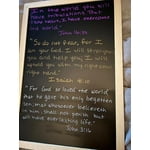 "In the world you will
have tribulations. But
take heart, I have overcome
the world."
John 16:33
"So do not fear, for I
am your God. I will strengthen
you and help you; I will
uphold you with my righteous
right hand."
Isaiah 41:10
"For God so loved the world
that he gave his only begotten
son, that whosoever believes
in him, shall not perish but
will have everlasting life."
John 3:16